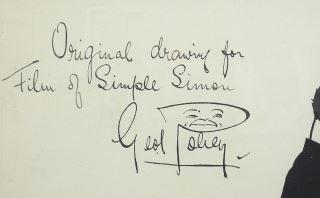 Original drawing for
Film of Simple Simon
Geo. Robey